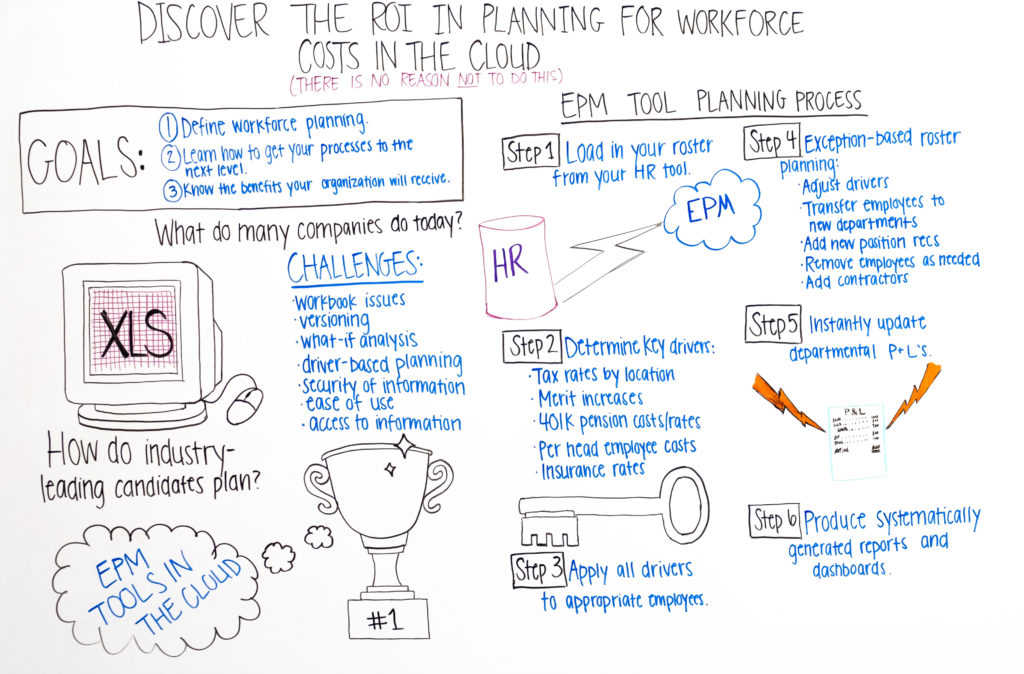 DISCOVER THE ROI IN PLANNING FOR WORKFORCE
COSTS IN THE CLOUD
(THERE IS NO REASON NOT TO DO THIS)
GOALS:
1 Define workforce planning.
2 Learn how to get your processes to the
next level.
3 Know the benefits your organization will receive.
What do many companies do today?
XLS
CHALLENGES:
·workbook issues
·versioning
·what-if analysis
·driver-based planning
·security of information
·ease of use
·access to information
How do industry-
leading candidates plan?
EPM
TOOLS IN
THE CLOUD
#1
EPM TOOL PLANNING PROCESS
Step 1 Load in your roster
from your HR tool.
HR
EPM
Step 2 Determine key drivers:
·Tax rates by location
·Merit increases
·401K pension costs/rates
·Per head employee costs
·Insurance rates
Step 3 Apply all drivers
to appropriate employees.
Step 4 Exception-based roster
planning:
·Adjust drivers
·Transfer employees to
new departments
·Add new position recs
·Remove employees as needed
·Add contractors
Step 5 Instantly update
departmental P+L's.
P & L
Step 6 Produce systematically
generated reports and
dashboards.